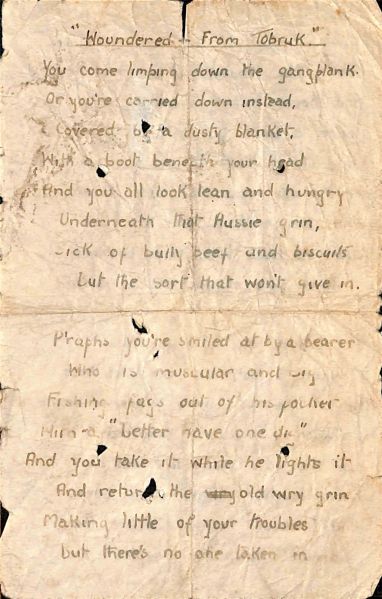 "Woundered - From Tobruk"
You come limping down the gangplank.
Or you're carried down instead,
Covered by a dusty blanket,
With a boot beneath your head
And you all look lean and hungry
Underneath that Aussie grin,
Sick of bully beef and biscuits
but the sort that won't give in.
P'raphs you're smiled at by a bearer
Who is muscular and big
Fishing fags out of his pocket
With a "better have one dig"
And you take it while he lights it
And return the old wry grin
Making little of your troubles
but there's no one taken in